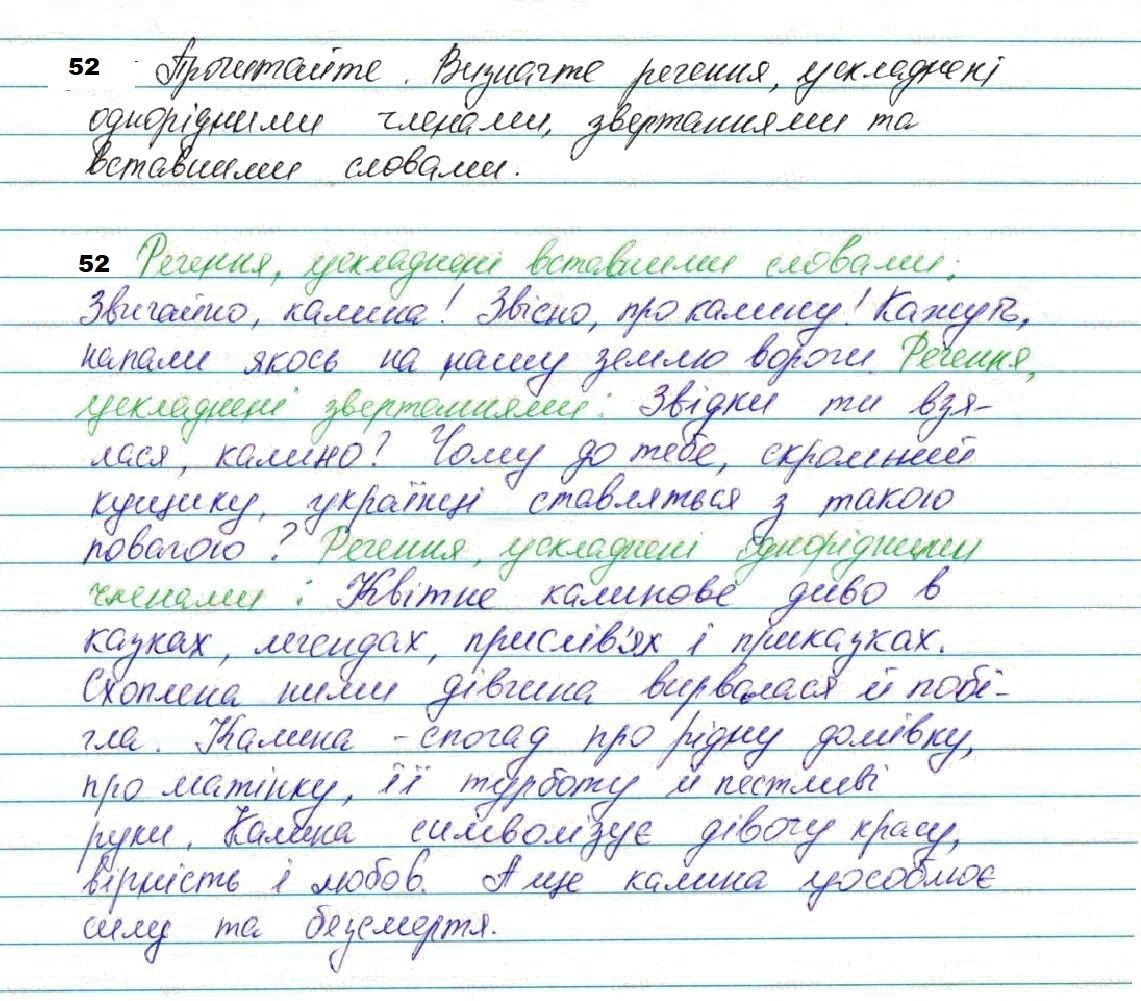 52 Прочитайте. Визначте речення, ускладнені
однорідними членами, звертаннями та
вставними словами.
52 Речення, ускладнені вставними словами:
Звичайно, калина! Звісно, про калину! Кажуть,
напали якось на нашу землю вороги. Речення,
ускладнені звертаннями: Звідки ти взя-
лася, калино? Чому до тебе, скромний
кущику, українці ставляться з такою
повагою? Речення, ускладнені однорідними
членами: Квітне калинове диво в
казках, легендах, прислів'ях і приказках.
Схоплена ними дівчина вирвалася й побі-
гла. Калина - спогад про рідну домівку,
про матінку, її турботу й пестливі
руки. Калина символізує дівочу красу,
вірність і любов. А ще калина уособлює
силу та безсмертя.